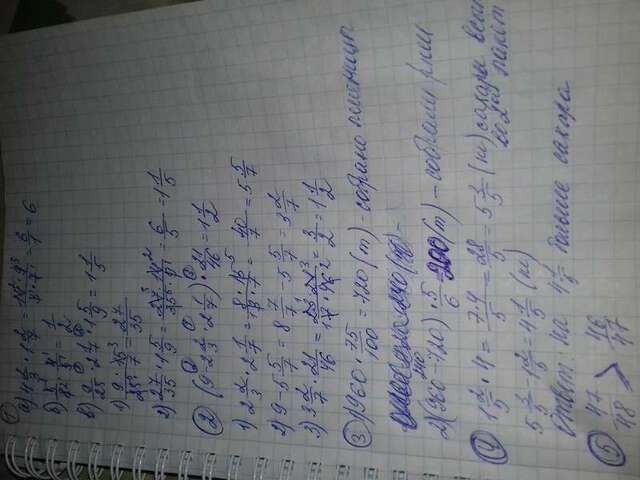 ①
а) 4 2/3 · 1 2/7 = 14 · 9 / 3 · 7 = 6/1 = 6
б) 5/8 · 4/5 = 1/2
в) 9/25 · 2 1/7 · 1 5/9 = 1 1/5
1) 9 · 15 / 25 · 7 = 27/35
2) 27/35 · 1 5/9 = 27 · 14 / 35 · 9 = 6/5 = 1 1/5
② (9 - 2 2/3 · 2 1/7) · 21/46 = 1 1/2
1) 2 2/3 · 2 1/7 = 8 · 15 / 3 · 7 = 40/7 = 5 5/7
2) 9 - 5 5/7 = 8 7/7 - 5 5/7 = 3 2/7
3) 3 2/7 · 21/46 = 23 · 21 / 7 · 46 = 3/2 = 1 1/2
③ 1) 960 · 75/100 = 720 (т) - собрано пшеницы
2) (960 - 720) · 5/6 = 200 (т) - собрали ржи
④ 1 2/5 · 4 = 7 · 4 / 5 = 28/5 = 5 3/5 (кг) сахары
во 2ой пакет
5 3/5 - 1 2/5 = 4 1/5 (кг)
Ответ: на 4 1/5 больше сахара
⑤ 47/48 > 46/47